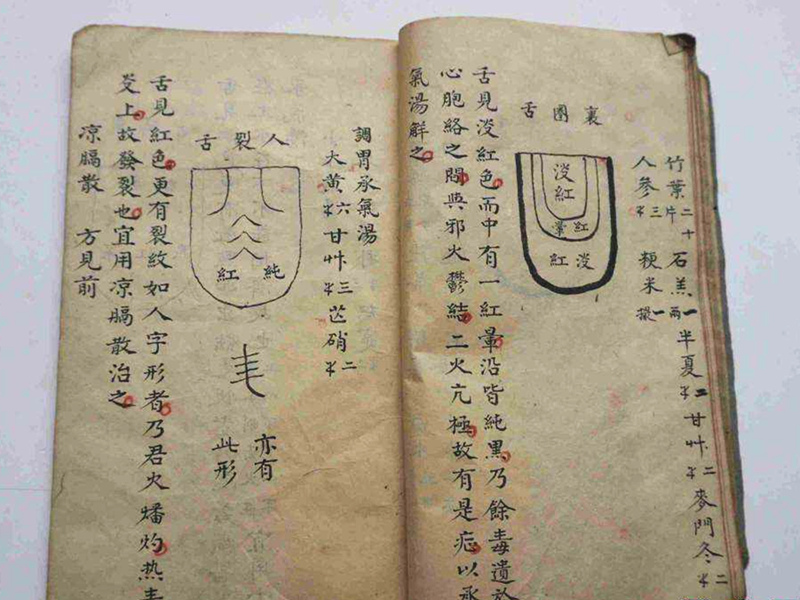 竹葉二十片 石羔一兩 半夏二 甘艸二 麥門冬二
人參三 粳米一撮
裏圈舌
淡紅
紅暈
淡紅
舌見淡紅色而中有一紅暈沿皆純黑乃餘毒遺於
心胞絡之間與邪火鬱結二火亢極故有是症以承
氣湯解之
調胃承氣湯
大黃六 甘艸三 芒硝二
人裂舌
純紅
亦有
此形
舌見紅色更有裂紋如人字形者乃君火燔灼热毒
炎上故發裂也宜用凉膈散治之
凉膈散 方見前